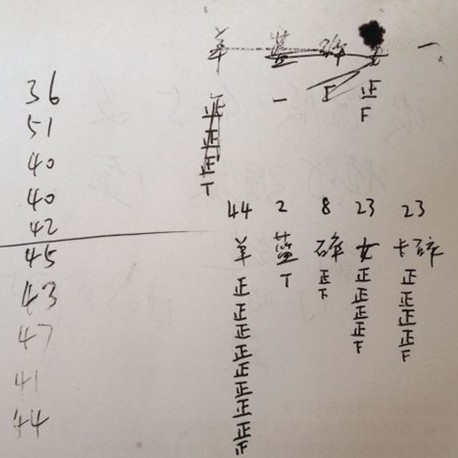 36
51
40
40
42
45
43
47
41
44
羊 蓝 碎 女 一
正 一 正 正
正 F
正
正
T
44 2 8 23 23
羊 蓝 碎 女 卡碎
正 T 正 正 正
正 下 正 正
正 正 正
正 正 正
正 F F
正
正
正
正